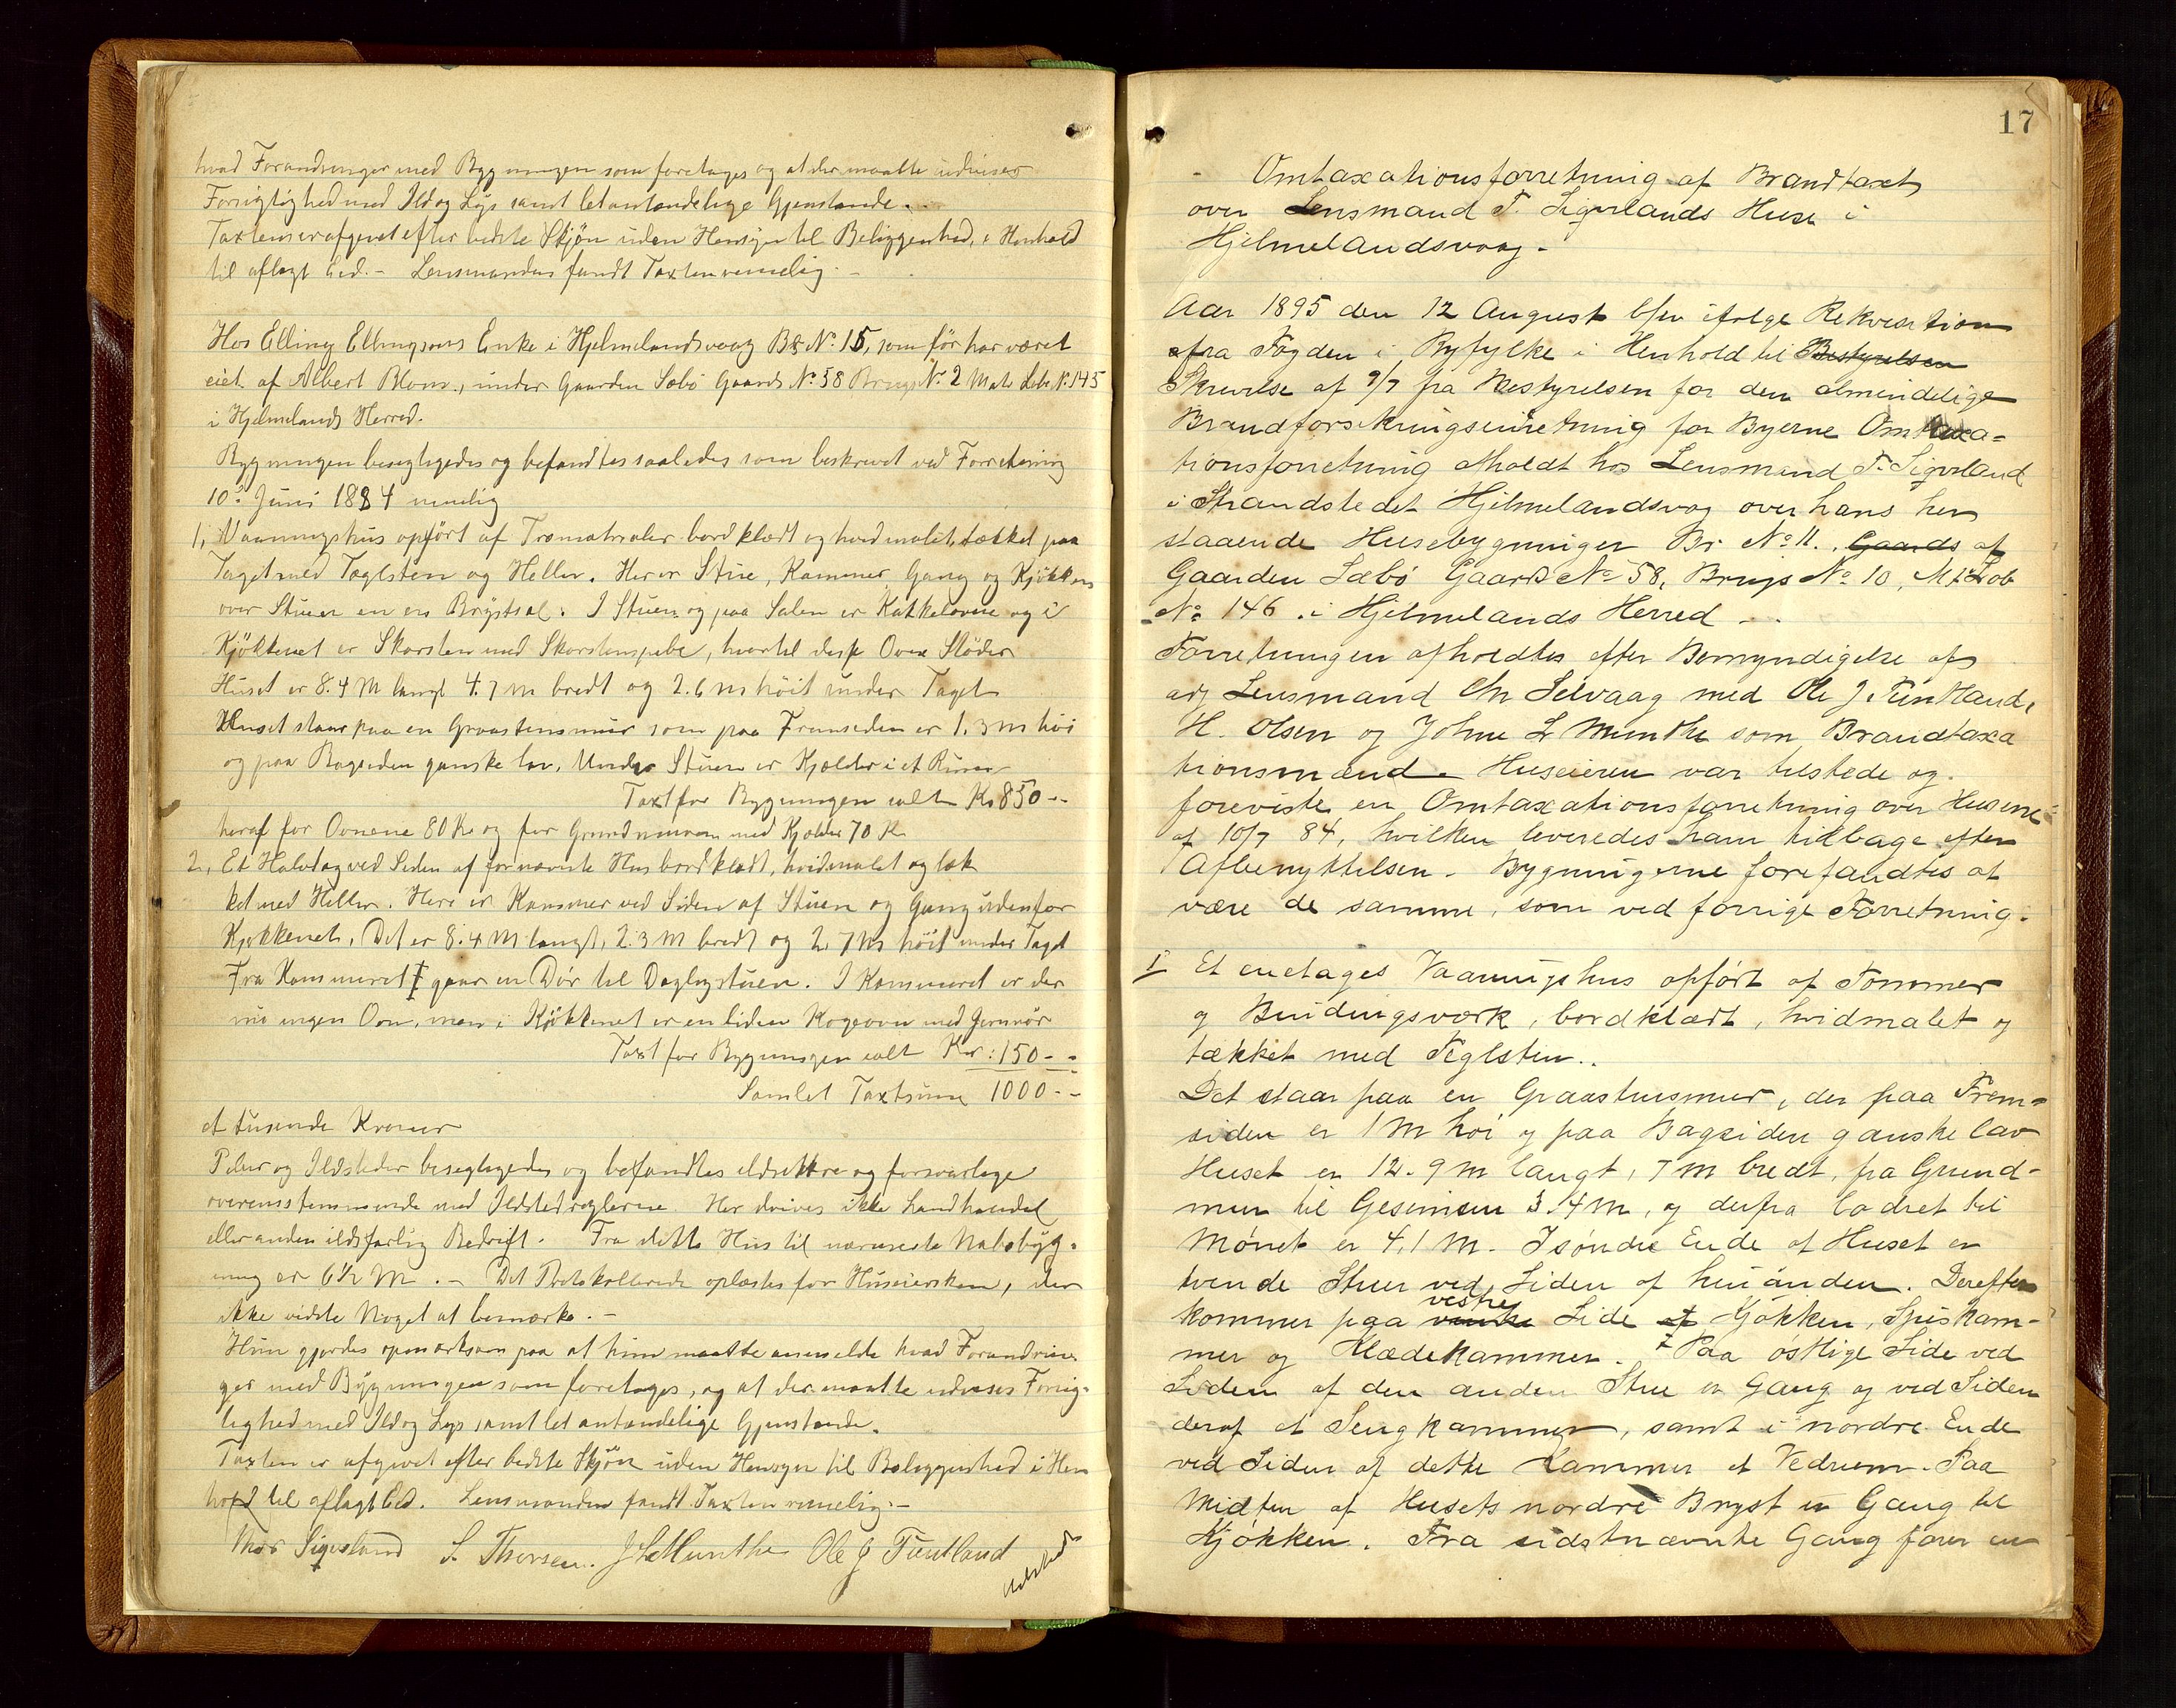 hvad Forandringer med Bygningen som foretages og at der maatte udvises
Forsigtighed med Ild og Lys samt letantændelige Gjenstande.
Taxten er afgivet efter bedste Skjön uden Hensyn til Beliggenhed, i Henhold
til aflagt Eed. - Lensmanden fandt Taxten rimelig. -
Hos Elling Ellingsens Enke i Hjelmelandsvaag Br No 15, som för har været
eiet af Albert Blom, under Gaarden Sæbö Gaards No 58 Brugs No 2 Matr Löbe No 145
i Hjelmelands Herred.
Bygningen besigtigedes og befandtes saaledes som beskrevet ved Forretning
10de Juni 1884 nemlig
1, Vaaningshus opfört af Træmatrialer bordklædt og hvidmalet, tækket paa
Taget med Taglsten og Heller. Her er Stue, Kammer, Gang og Kjökken
over Stuen en en Brystsal. I Stuen og paa Salen er Kakkelovne og i
Kjökkenet er Skorsten med Skorstenspibe, hvortil disse Ovne Stöder
Huset er 8.4 M langt 4.7 m bredt og 2.6 m höit under Taget
Huset staar paa en Graastensmur som paa Fremsiden er 1.3 m höi
og paa Bagsiden ganske lav. Under Stuen er Kjelder i et Rum
Taxt for Bygningen ialt Kr 850 --
heraf for Ovnene 80 Kr og for Grundmuren med Kjelder 70 Kr
2, Et Halvtag ved Siden af fornævnte Hus bordklædt, hvidmalet og tæk
ket med Heller. Heri er Kammer ved Siden af Stuen og Gang udenfor
Kjøkkenet. Det er 8.4 M langt, 2.3 M bredt og 2,7 m höit under Taget
Fra Kammeret gaar en Dör til Dagligstuen. I Kammeret er der
nu ingen Ovn, men i Kjökkenet er en liden Kogeovn med Jernrör
Taxt for Bygningen ialt Kr: 150 - -
Samlet Taxtsum 1000 - -
et tusende Kroner
Piber og Ildsteder besigtigedes og befandtes ildsikkre og forsvarlige
overensstemmende med Ildstedreglerne. Her drives ikke Landhandel
eller anden ildsfarlig Bedrift. Fra dette Hus til nærmeste Nabobyg-
ning er 6½ M. - Det Protokollerede oplæstes for Huseiersken, der
ikke vidste Noget at bemærke. -
Hun gjordes opmærksom paa at hun maatte anmelde hvad Forandrin-
ger med Bygningen som foretages, og at der maatte udvises Forsig-
tighed med Ild og Lys samt let antændelige Gjenstande.
Taxten er afgivet efter bedste Skjön uden Hensyn til Beliggenhed i Hen
hold til aflagt Eed. Lensmanden fandt Taxten rimelig. -
Thor Sigvesland S. Thorsen. J L Munthe Ole J Tuntland
17
Omtaxationsforretning af Brandtaxt
over Lensmand T. Sigvelands Huse i
Hjelmelandsvaag. -
Aar 1895 den 12 August blev ifølge Rekvisition
fra Fogden i Ryfylke i Henhold til Bestyrelsen
Skrivelse af 9/7 fra Bestyrelsen for den almindelige
Brandforsikringsindretning for Byerne Omtaxa-
tionsforretning afholdt hos Lensmand T. Sigvesland
i Strandstedet Hjelmelandsvag over hans her
staaende Husebygninger Br. No 11. Gaards af
Gaarden Sæbö Gaards No 58, Brugs No 10, Mt Løb
No 146 i Hjelmelands Herred -.
Forretningen afholdtes efter Bemyndigelse af
af Lensmand Chr Selvaag med Ole J. Tuntland,
H. Olsen og Johne L Munthe som Brandtaxa
tionsmænd. Huseieren var tilstede og
foreviste en Omtaxationsforretning over Husene
af 10/7 84, hvilken leveredes ham tilbage efter
Afbenyttelsen. Bygningerne forefandtes at
være de samme, som ved forrige Forretning.
I Et enetages Vaaningshus opfört af Tømmer
og Bindingsværk, bordklædt, hvidmalet og
tækket med Teglsten..
Det staar paa en Graastensmur, der paa Frem-
siden er 1 M høi og paa Bagsiden ganske lav
Huset er 12.9 m langt, 7 m bredt, fra Grund-
mur til Gesimsen 3.4 m, og derfra lodret til
Mönet er 4,1 M. I söndre Ende af Huset er
tvende Stuer ved Siden af hinánden. Derefter
kommer paa venstre vestre Side af Kjökken, Spiskam-
mer og Klædekammer. Paa östlige Side ved
Siden af den anden Stue er Gang og ved Siden
deraf et Sengkammer, samt i nordre Ende
ved Siden af dette Kammer et Vedrum. Paa
Midten af Husets nordre Bryst er Gang til
Kjökken. Fra sidstnævnte Gang fører en